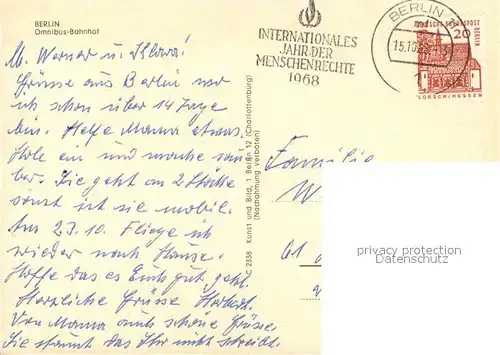 BERLIN
Omnibus-Bahnhof
INTERNATIONALES
JAHR DER
MENSCHENRECHTE
1968
BERLIN
15.10.
DEUTSCHE BUNDESPOST BERLIN
20
LORSCH/HESSEN
M. Werner u.
Grüsse aus Berlin wo
ich schon über 14 Tage
bin. Helfe Mama etwas.
Hole ein und mache sau
ber. Sie geht an 2 Stöcke
sonst ist sie mobil.
Am 23.10. Fliege ich
wieder nach Hause.
Hoffe das es Euch gut geht.
Herzliche Grüsse Herbert.
Von Mama auch schöne Grüsse.
Sie staunt das Ihr nicht schreibt.
C 2358 Kunst und Bild, 1 Berlin 12 (Charlottenburg)
(Nachahmung verboten)
Familie
W
61
privacy protection
Datenschutz